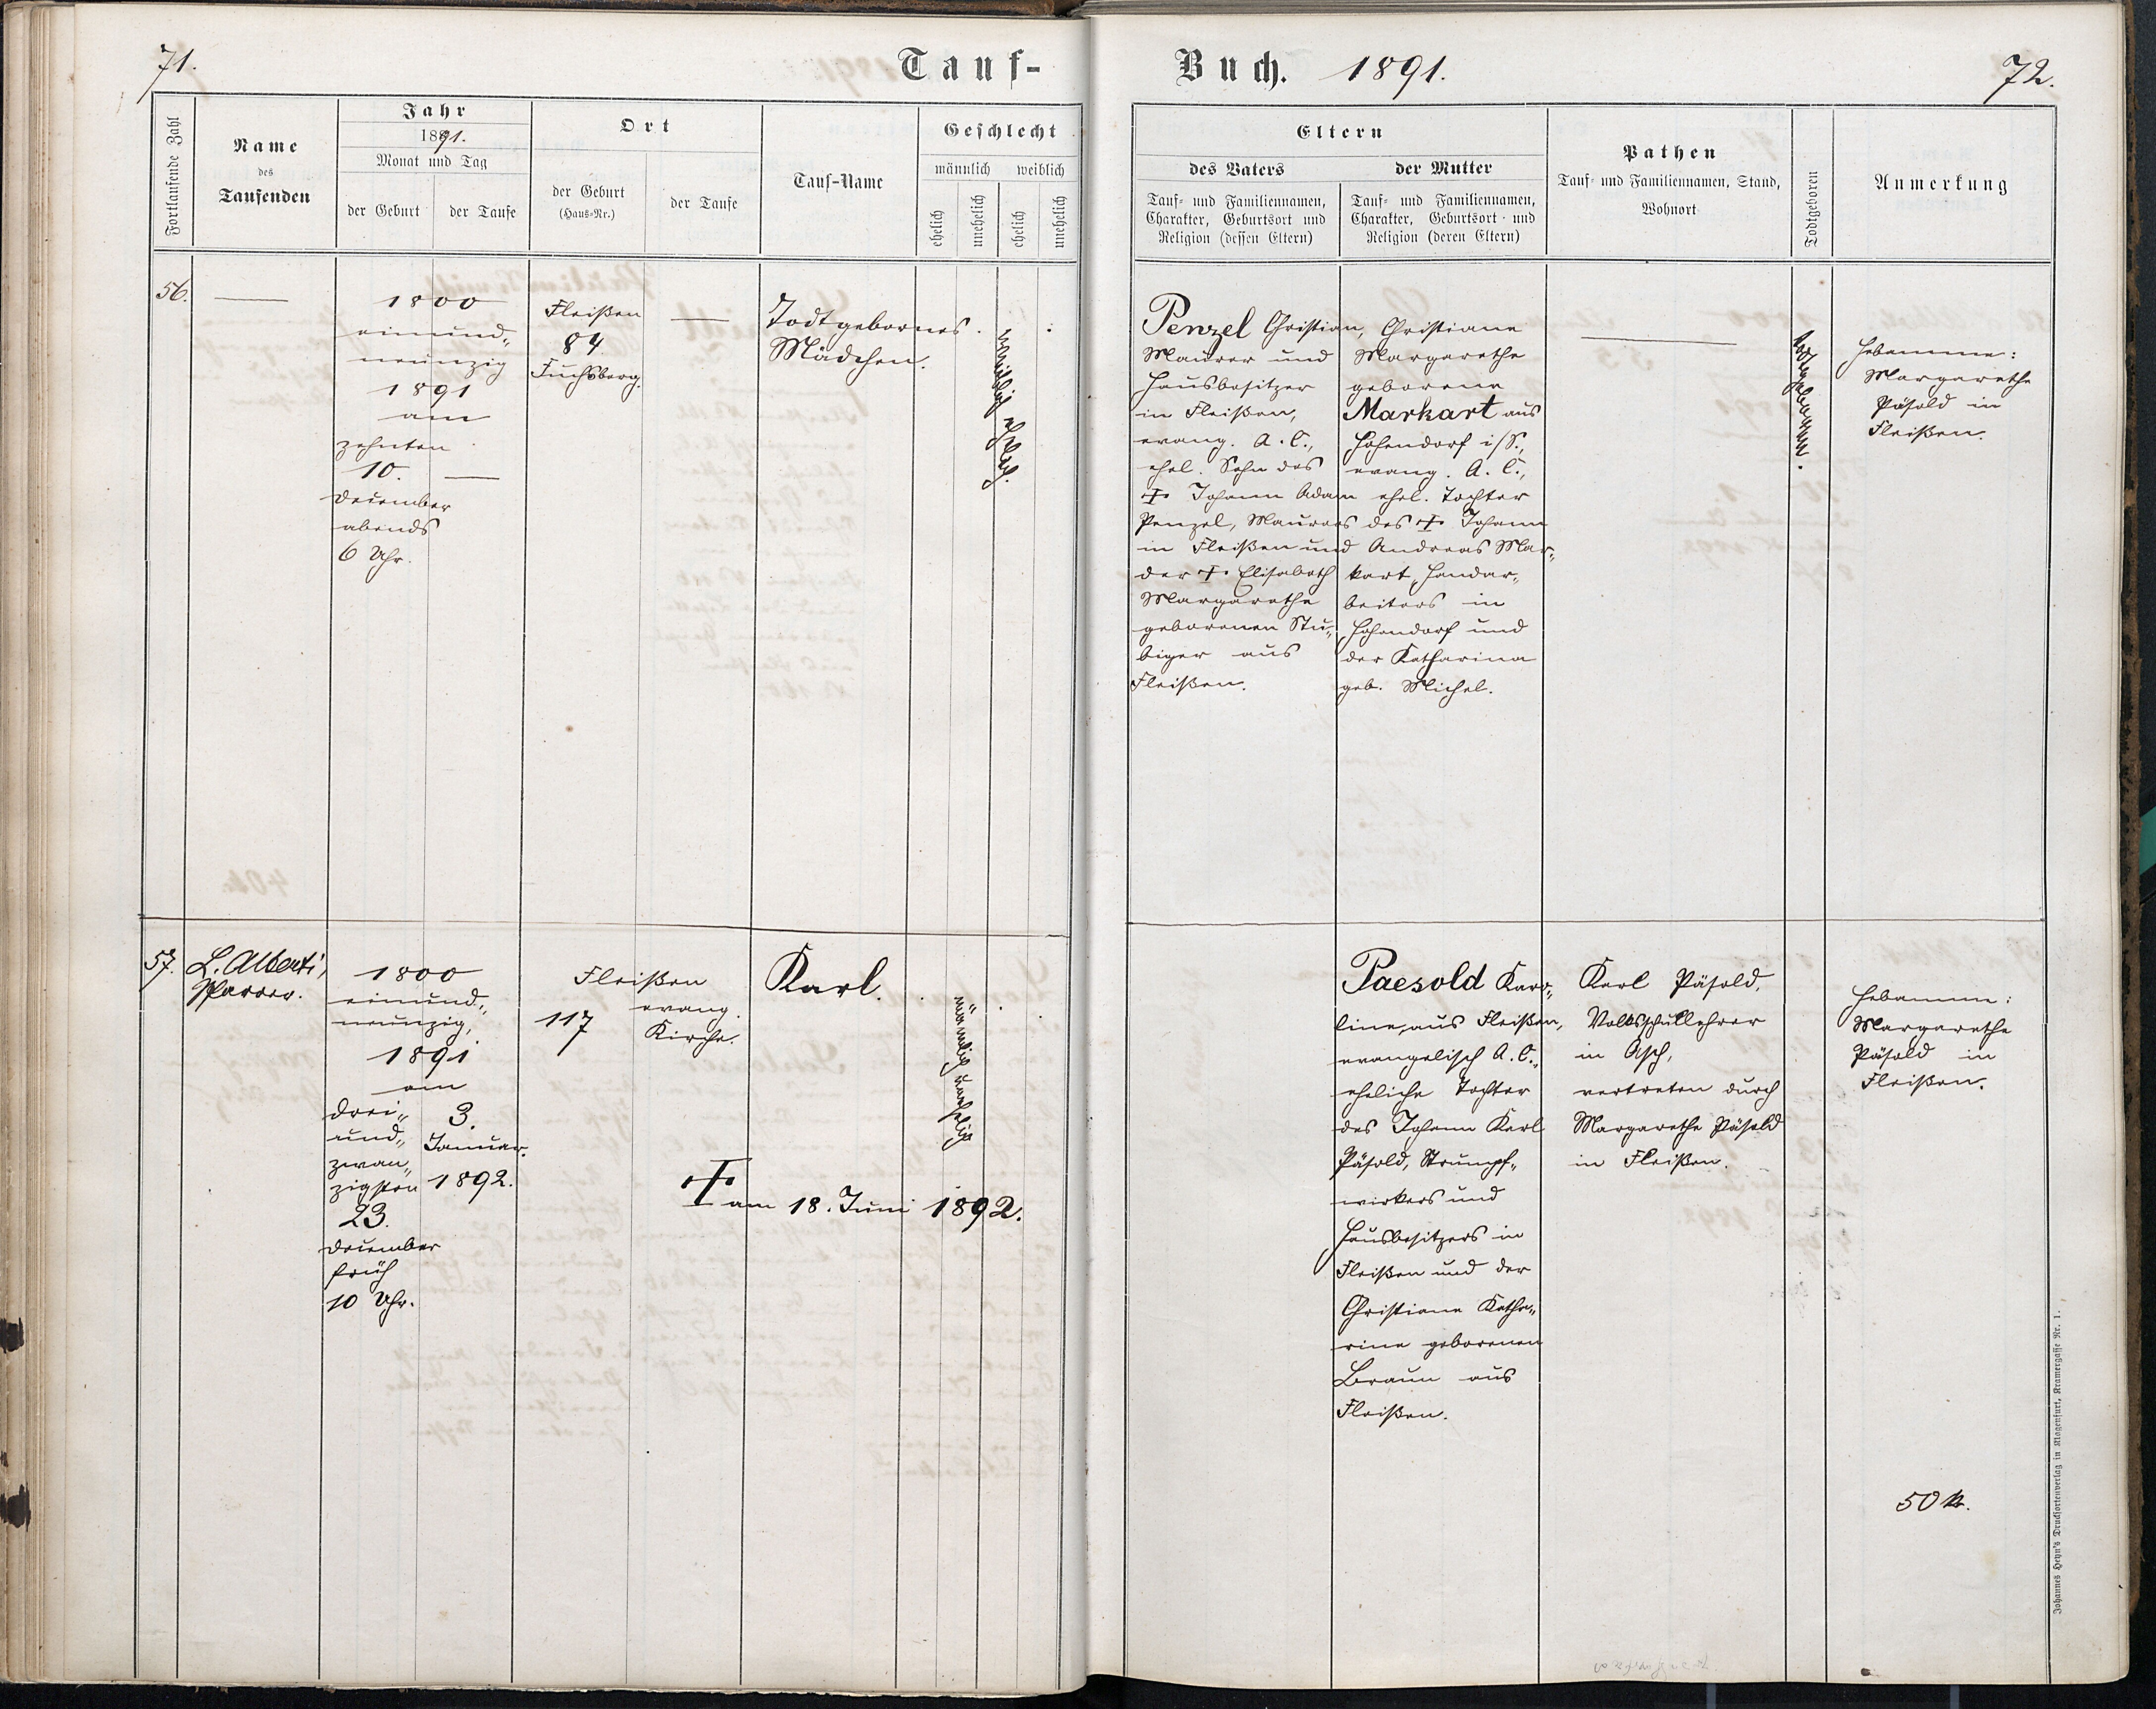 71.
Tauf-
Buch. 1891.
72.
Fortlaufende Zahl
Name
des
Taufenden
Jahr
1891.
Monat und Tag
der Geburt
der Taufe
Ort
der Geburt
(Haus-Nr.)
der Taufe
Tauf-Name
Geschlecht
männlich
weiblich
ehelich
unehelich
ehelich
unehelich
Eltern
des Vaters
Tauf- und Familiennamen,
Charakter, Geburtsort und
Religion (dessen Eltern)
der Mutter
Tauf- und Familiennamen,
Charakter, Geburtsort und
Religion (deren Eltern)
Pathen
Tauf- und Familiennamen, Stand,
Wohnort
Todtgeboren
Anmerkung
56.
1800
einund„
neunzig
1891
am
zehnten
10.
December
abends
6 Uhr.
Fleißen
84
Fuchsberg.
Todtgebornes
Mädchen.
weiblich ehelich.
Penzel Christian,
Maurer und
Hausbesitzer
in Fleißen,
evang. A. C.,
ehel. Sohn des
† Johann Adam
Penzel, Maurers
in Fleißen und
der † Elisabeth
Margarethe
geborenen Stu„
biger aus
Fleißen.
Christiane
Margarethe
geborene
Markart aus
Hohendorf i/S.,
evang. A. C.,
ehel. Tochter
des † Johann
Andreas Mar„
kart, Handar„
beiters in
Hohendorf und
der Katharina
geb. Michel.
todtgeboren.
Hebamme:
Margarethe
Päsold in
Fleißen.
57.
L. Alberti,
Pfarrer.
1800
einund„
neunzig,
1891
am
drei„
und„
zwan„
zigsten
23.
December
früh
10 Uhr.
3.
Januar.
1892.
Fleißen
117
evang.
Kirche.
Karl.
männlich unehelich
† am 18. Juni 1892.
Paesold Karo„
line, aus Fleißen,
evangelisch A. C.,
eheliche Tochter
des Johann Karl
Päsold, Strumpf„
wirkers und
Hausbesitzers in
Fleißen und der
Christiane Katha„
rine geborenen
Braun aus
Fleißen.
Karl Päsold,
Volksschullehrer
in Asch,
vertreten durch
Margarethe Päsold
in Fleißen.
Hebamme:
Margarethe
Päsold in
Fleißen.
50 kr.
Johannes Heyn's Drucksortenverlag in Klagenfurt, Kramergasse Nr. 1.